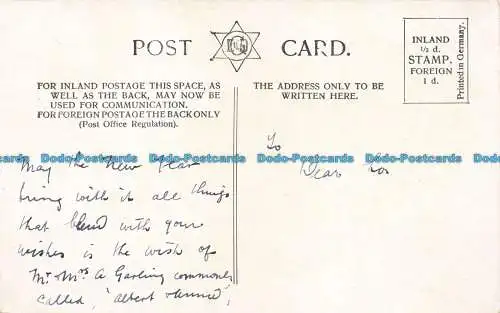 POST CARD.
FOR INLAND POSTAGE THIS SPACE, AS
WELL AS THE BACK, MAY NOW BE
USED FOR COMMUNICATION.
FOR FOREIGN POSTAGE THE BACK ONLY
(Post Office Regulation).
THE ADDRESS ONLY TO BE
WRITTEN HERE.
INLAND
½ d.
STAMP.
FOREIGN
1 d.
Printed in Germany.
Dodo-Postcards Dodo-Postcards Dodo-Postcards Dodo-Postcards Dodo-Postcards
May the New Year
bring with it all things
that blend with your
wishes is the wish of
Mr & Mrs A Garling commonly
called, "Albert & Annie",
To
Dear
Dodo-Postcards Dodo-Postcards Dodo-Postcards Dodo-Postcards Dodo-Postcards